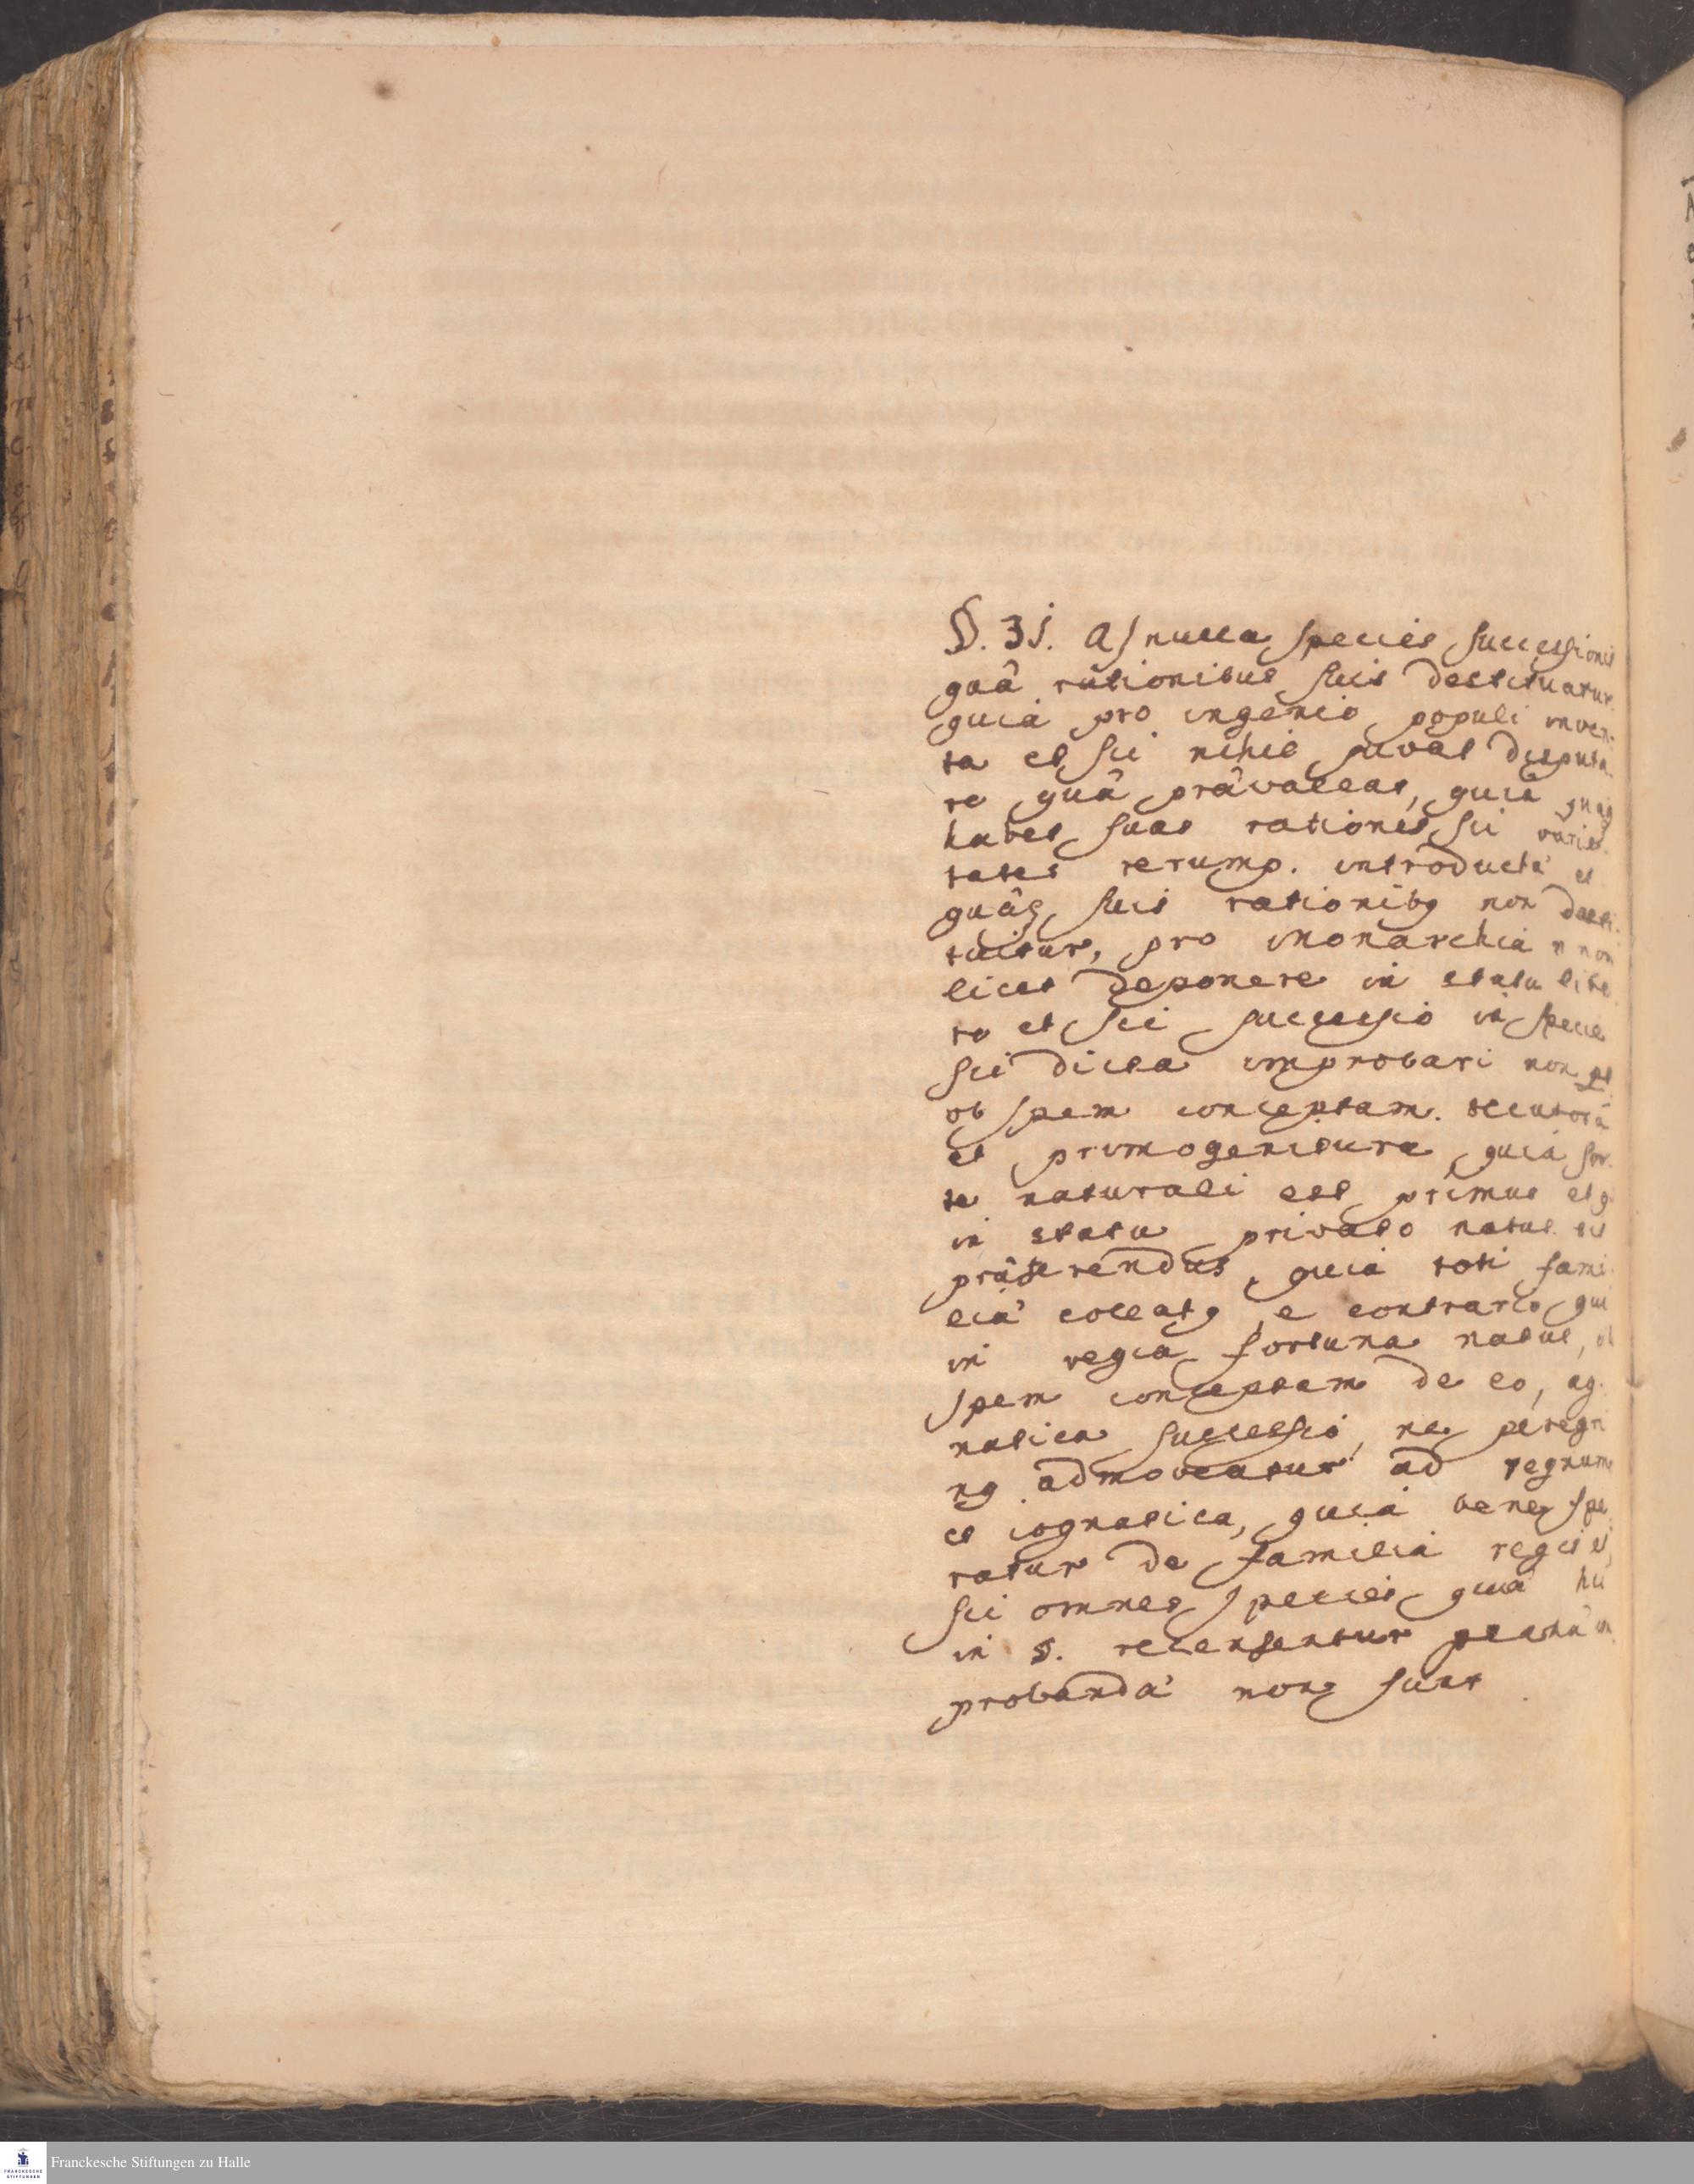 §. 35. At nulla species successionis
quâ rationibus suis destituatur.
quia pro ingenio populi inven-
ta et sic nihil juvat disputa-
re quâ prævaleat, quia
habet suas rationes, sic varie-
tates rerump. introductæ et
quæq suis rationibq non desti-
tuitur, pro monarchia non
licet deponere in statu libe-
ro et sic successio in specie
sic dicta improbari non pt
ob spem conceptam.
et primogenitura quia sor-
te naturali est primus et q
in statu privato natus sit
præferendus, quia toti fami-
liæ collatq e contrario qui
in regia fortuna natus, ob
spem conceptam de eo, ag-
natica successio, ne peregri
nq admoveatur ad regnum
et cognatica, quia bene spe-
ratur de familia regis et
sic omnes species quæ hic
in §. recensentur planè im
probandæ non sunt
Franckesche Stiftungen zu Halle